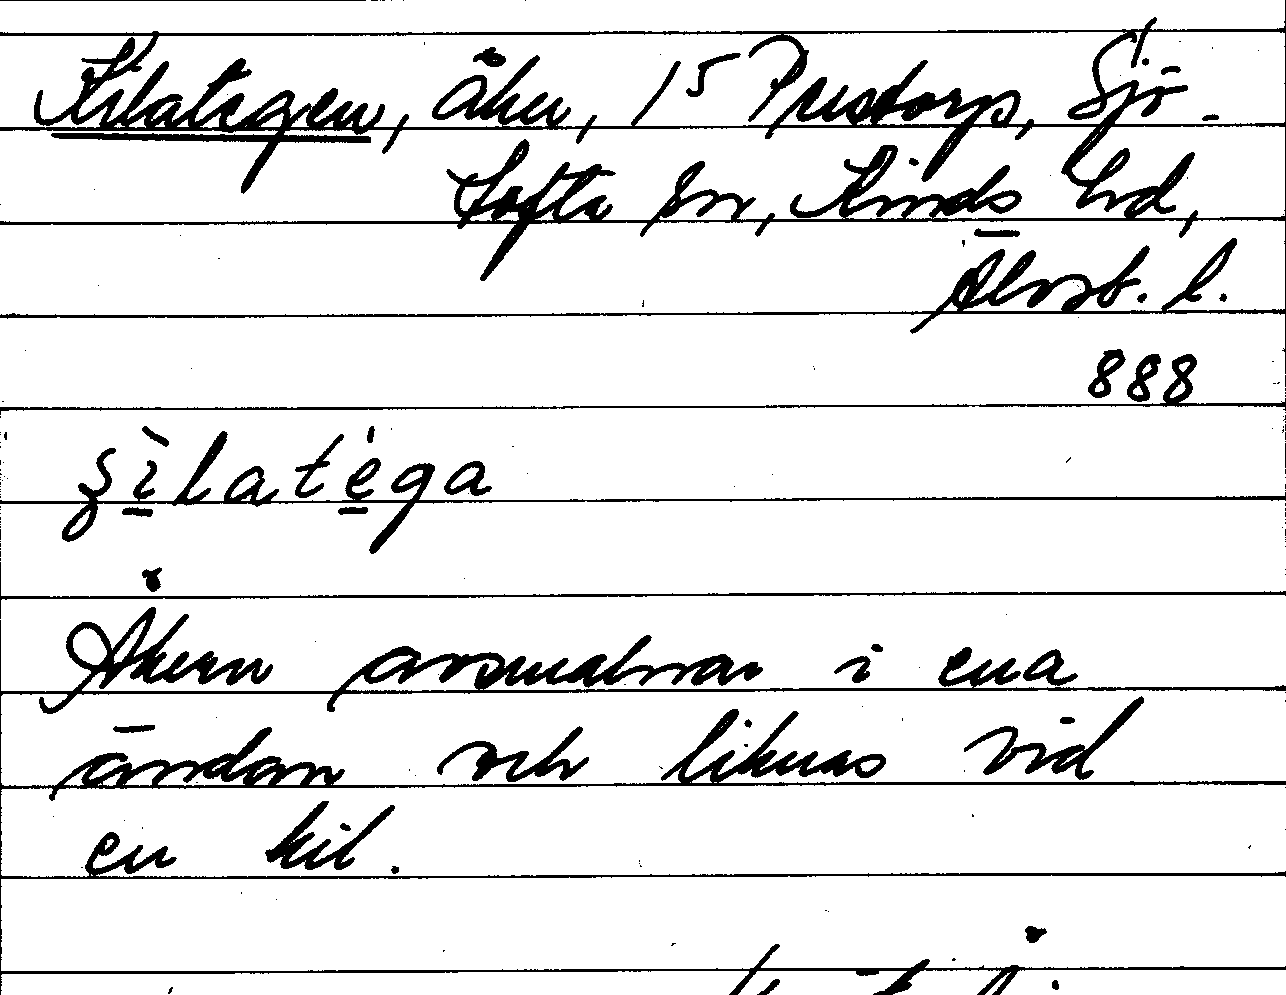 Kilategen, åker, 15 Prustorp, Sjö-
tofta sn, Kinds hd,
Älvsb. l.
888
ʂìlatéga
Åkern avsmalnar i ena
ändan och liknas vid
en kil.